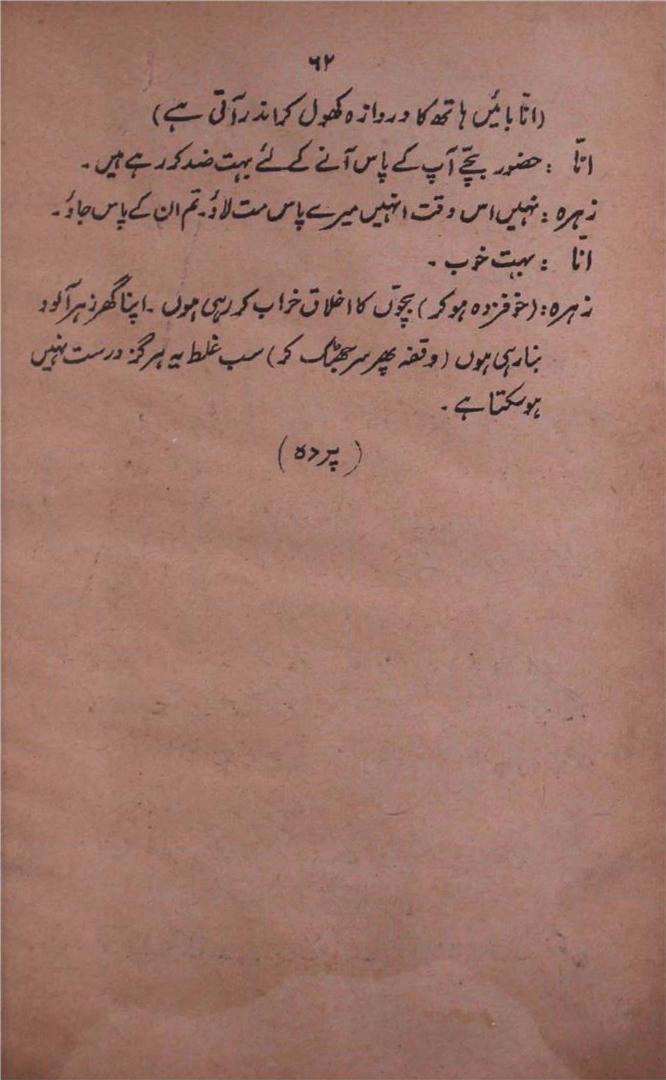 ۶۲
(انّا بائیں ہاتھ کا دروازہ کھول کر اندر آتی ہے)
انّا : حضور بچّے آپ کے پاس آنے کے لئے بہت ضد کر رہے ہیں۔
زہرہ : نہیں اس وقت انہیں میرے پاس مت لاؤ۔ تم ان کے پاس جاؤ۔
انّا : بہت خوب۔
زہرہ : (خوفزدہ ہو کر) بچّوں کا اخلاق خراب کر رہی ہوں۔ اپنا گھر زہر آلود
بنا رہی ہوں (وقفہ پھر سر جھٹک کر) سب غلط یہ ہرگز درست نہیں
ہو سکتا ہے۔
(پردہ)